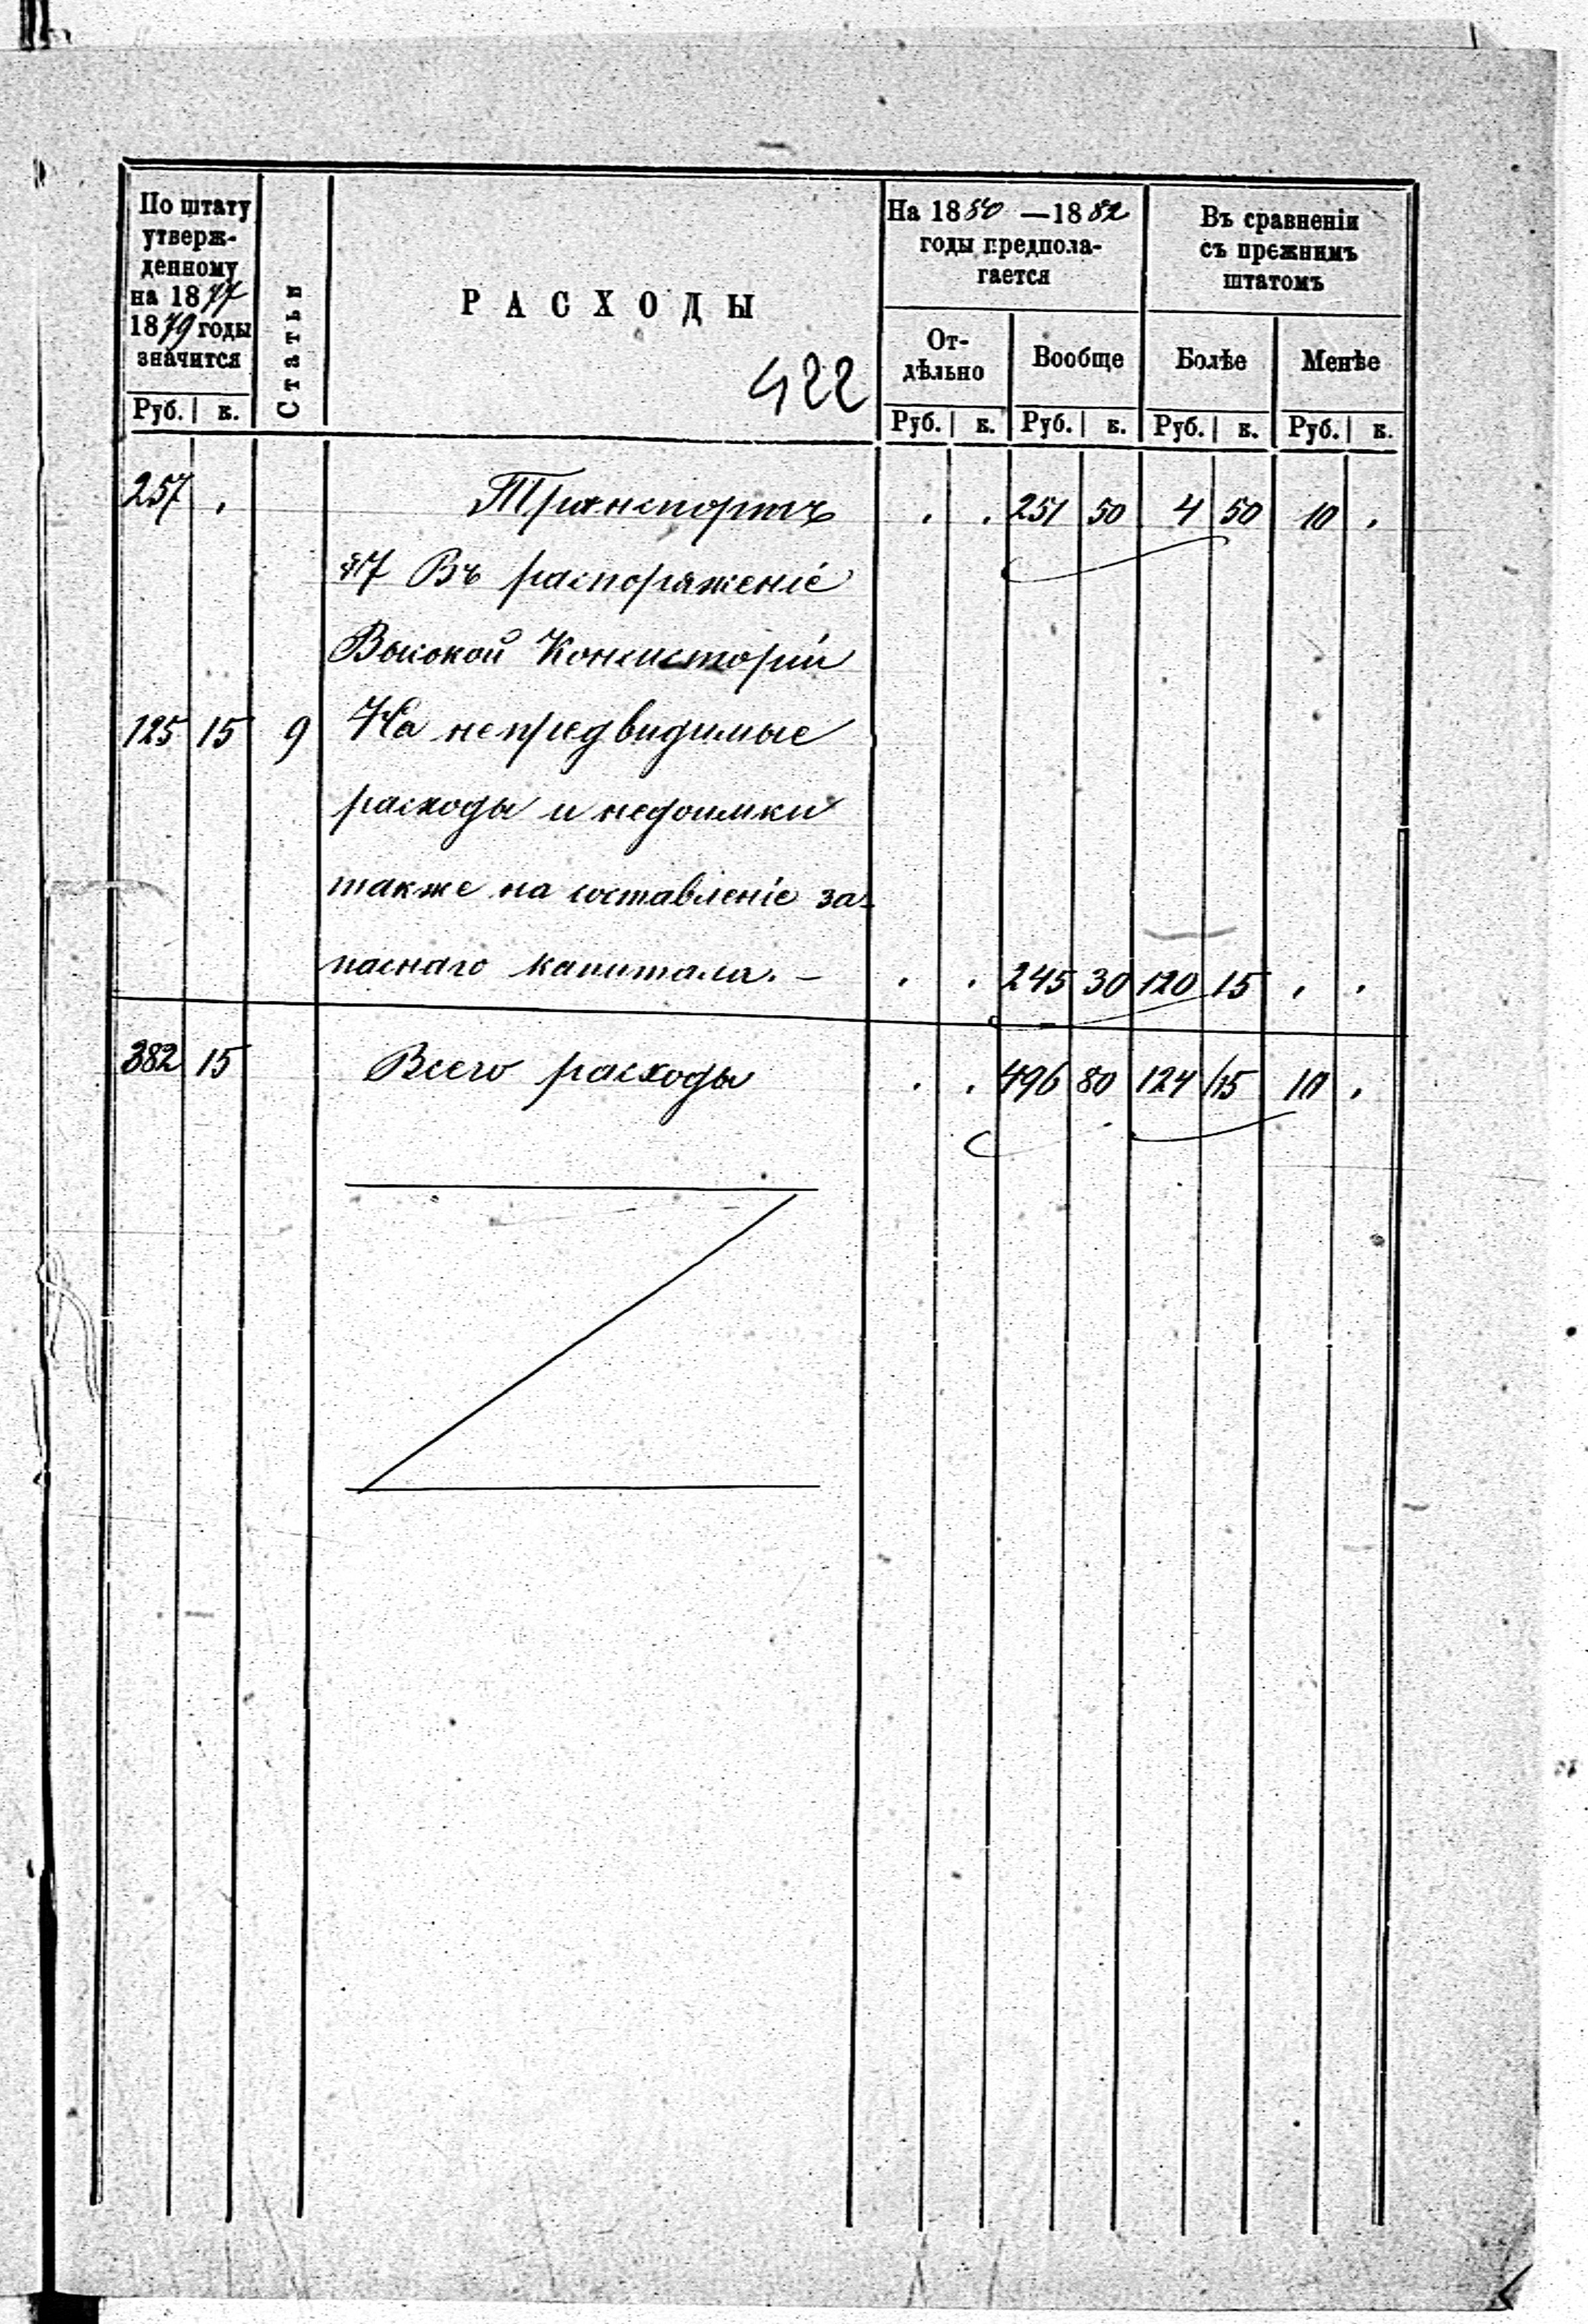 По штату
утверж-
денному
на 1877
1879 годы
значится
Руб. к.
Статьи
РАСХОДЫ
422
На 1880 —1882
годы предпола-
гается
От-
дѣльно
Вообще
Руб. к. Руб. к.
Въ сравненіи
съ прежнимъ
штатомъ
Болѣе Менѣе
Руб. к. Руб. к.
257 . Транспортъ . . 251 50 4 50 10 .
§7 Въ распоряженіе
Высокой Консисторіи
125 15 9 На непредвидимые
расходы и недоимки
также на составленіе за-
паснаго капитала. — . . 245 30 120 15 . .
382 15 Всего расходы . . 496 80 124 15 10 .